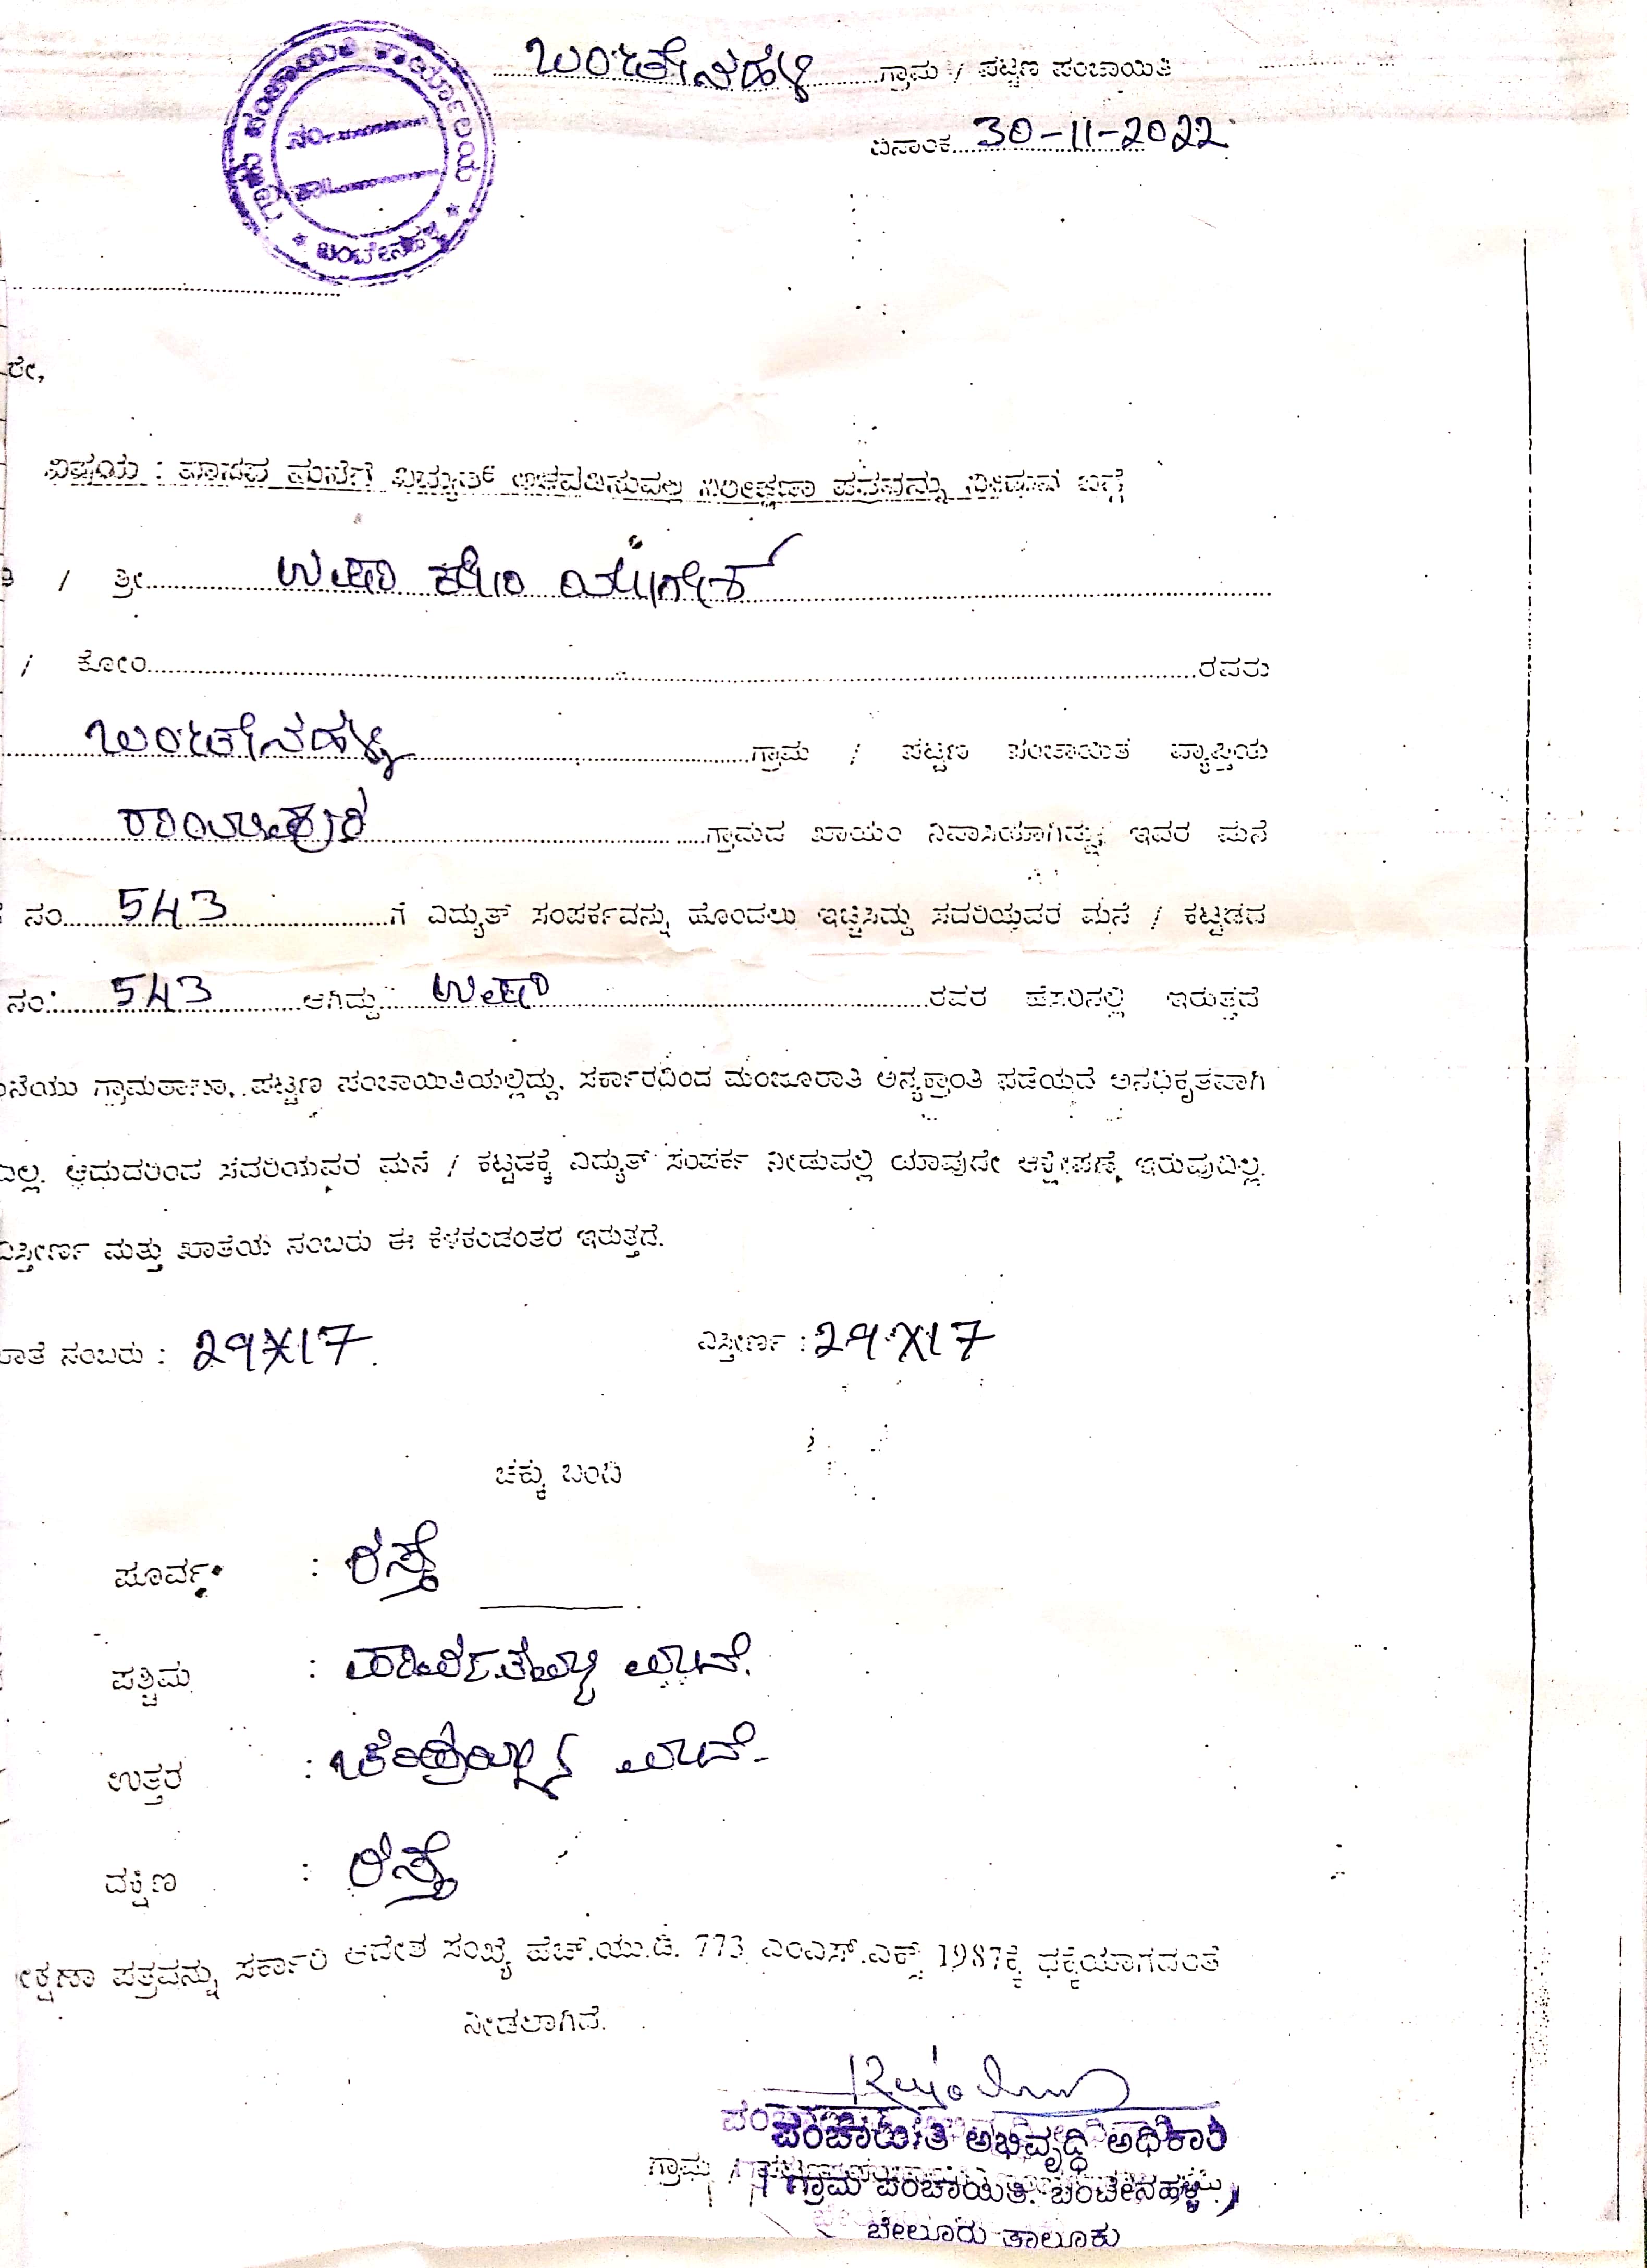 ಗ್ರಾಮ ಪಂಚಾಯಿತಿ ಕಾರ್ಯಾಲಯ
ನಂ.
ತಾ||
* ಬಂಟೇನಹಳ್ಳಿ *
ಬಂಟೇನಹಳ್ಳಿ ಗ್ರಾಮ / ಪಟ್ಟಣ ಪಂಚಾಯಿತಿ
ದಿನಾಂಕ 30-11-2022
ರೇ,
ವಿಷಯ : ವಾಸದ ಮನೆಗೆ ವಿದ್ಯುತ್ ಅಳವಡಿಸುವಲ್ಲಿ ನಿರೀಕ್ಷಣಾ ಪತ್ರವನ್ನು ನೀಡುವ ಬಗ್ಗೆ
/ ಶ್ರೀ ಉಷಾ ಕೋಂ ಯೋಗೇಶ್
/ ಕೋಂ ರವರು
ಬಂಟೇನಹಳ್ಳಿ ಗ್ರಾಮ / ಪಟ್ಟಣ ಪಂಚಾಯಿತಿ ವ್ಯಾಪ್ತಿಯ
ರಾಯಪುರ ಗ್ರಾಮದ ಖಾಯಂ ನಿವಾಸಿಯಾಗಿದ್ದು, ಇವರ ಮನೆ
ನಂ 543 ಗೆ ವಿದ್ಯುತ್ ಸಂಪರ್ಕವನ್ನು ಹೊಂದಲು ಇಚ್ಚಿಸಿದ್ದು ಸದರಿಯವರ ಮನೆ / ಕಟ್ಟಡದ
ನಂ: 543 ಆಗಿದ್ದು ಉಷಾ ರವರ ಹೆಸರಿನಲ್ಲಿ ಇರುತ್ತದೆ
ನೆಯು ಗ್ರಾಮಠಾಣಾ, ಪಟ್ಟಣ ಪಂಚಾಯಿತಿಯಲ್ಲಿದ್ದು, ಸರ್ಕಾರದಿಂದ ಮಂಜೂರಾತಿ ಅನ್ಯಕ್ರಾಂತಿ ಪಡೆಯದೆ ಅನಧಿಕೃತವಾಗಿ
ಲ್ಲ. ಆದುದರಿಂದ ಸದರಿಯವರ ಮನೆ / ಕಟ್ಟಡಕ್ಕೆ ವಿದ್ಯುತ್ ಸಂಪರ್ಕ ನೀಡುವಲ್ಲಿ ಯಾವುದೇ ಆಕ್ಷೇಪಣೆ ಇರುವುದಿಲ್ಲ.
ವಿಸ್ತೀರ್ಣ ಮತ್ತು ಖಾತೆಯ ನಂಬರು ಈ ಕೆಳಕಂಡಂತರ ಇರುತ್ತದೆ.
ಾತೆ ನಂಬರು : 29X17. ವಿಸ್ತೀರ್ಣ : 29X17
ಚಕ್ಕು ಬಂದಿ
ಪೂರ್ವ : ರಸ್ತೆ
ಪಶ್ಚಿಮ : ಮನೆ.
ಉತ್ತರ : ಮನೆ
ದಕ್ಷಿಣ : ರಸ್ತೆ
ೀಕ್ಷಣಾ ಪತ್ರವನ್ನು ಸರ್ಕಾರಿ ಆದೇಶ ಸಂಖ್ಯೆ ಹೆಚ್.ಯು.ಡಿ. 773 ಎಂಎಸ್.ಎಕ್ಸ್ 1987ಕ್ಕೆ ಧಕ್ಕೆಯಾಗದಂತೆ
ನೀಡಲಾಗಿದೆ.
ಪಂಚಾಯಿತಿ ಅಭಿವೃದ್ಧಿ ಅಧಿಕಾರಿ
ಗ್ರಾಮ ಪಂಚಾಯಿತಿ. ಬಂಟೇನಹಳ್ಳಿ
ಬೇಲೂರು ತಾಲೂಕು